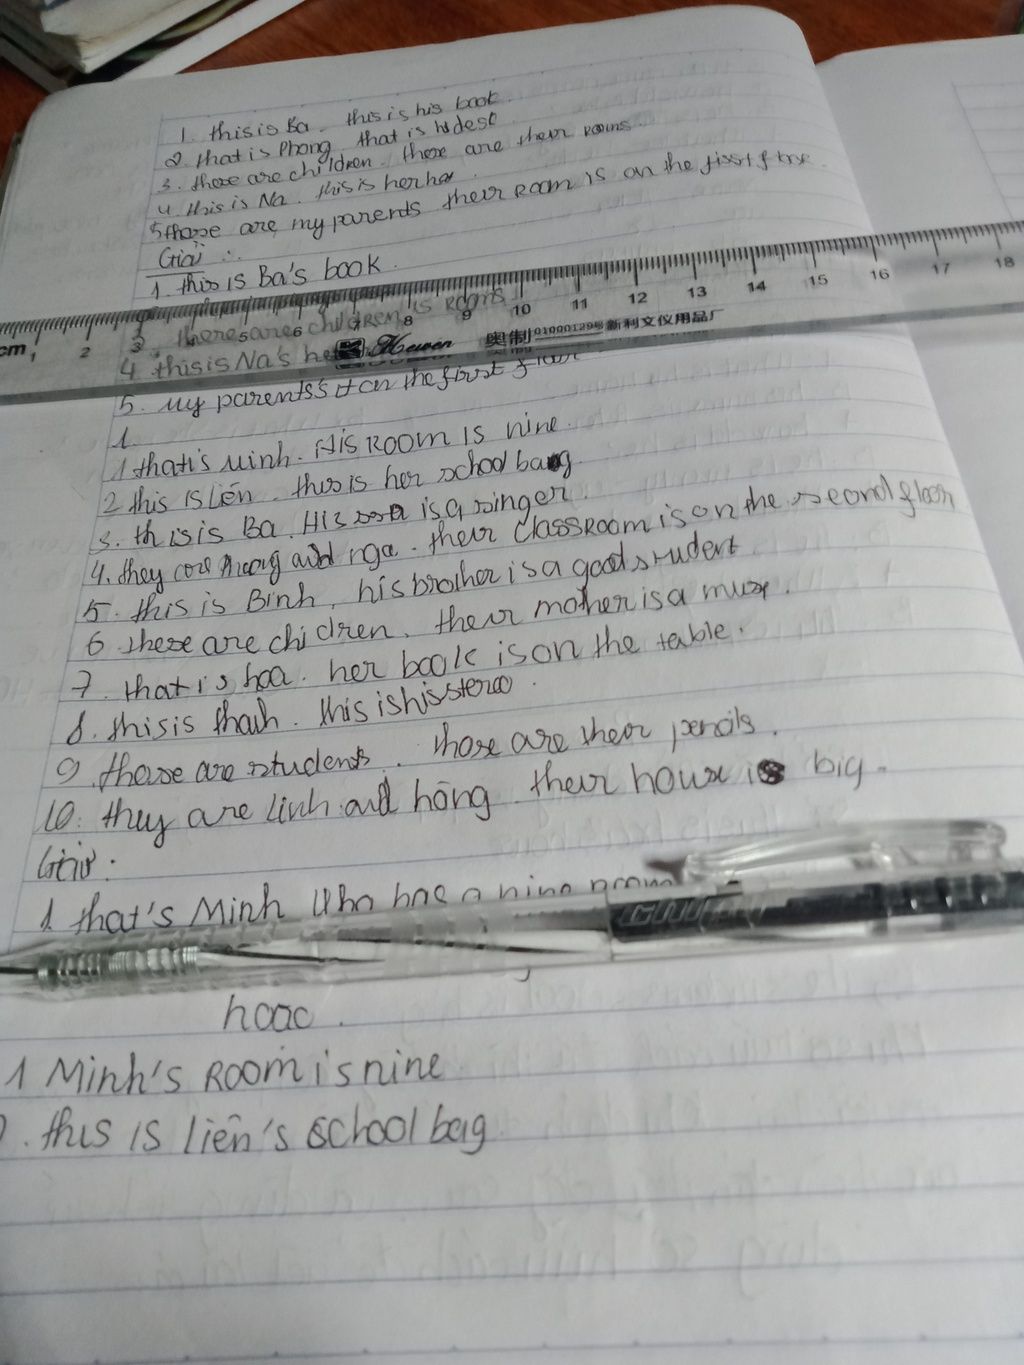 1. this is Ba. this is his book.
2. that is Phong. that is his desc
3. these are children. these are their rooms.
4. this is Na. this is her hat.
5 those are my parents their room is on the first
Giải:
1. this is Ba's book.
cm 1 2 3 4 5 6 7 8 9 10 11 12 13 14 15 16 17 18
3. these are children is rooms
奥制 01000129号 新利文仪用品厂
4 this is Na's
5. my parents's on the first floor
1.
1 that's Minh. His Room is nine.
2 this is liên. this is her school bag.
3. this is Ba. His is a singer.
4. they are and nga. their classroom is on the second floor
5. this is Binh. his brother is a good student
6 these are children. their mother is a
7. that is hoa. her book is on the table.
8. this is thanh. this is his stereo.
9 those are students. those are their pencils.
10. they are linh and hồng their house is big.
Giải:
1. that's Minh Who has a nine room
hoặc.
1 Minh's Room is nine
. this is liên's school bag